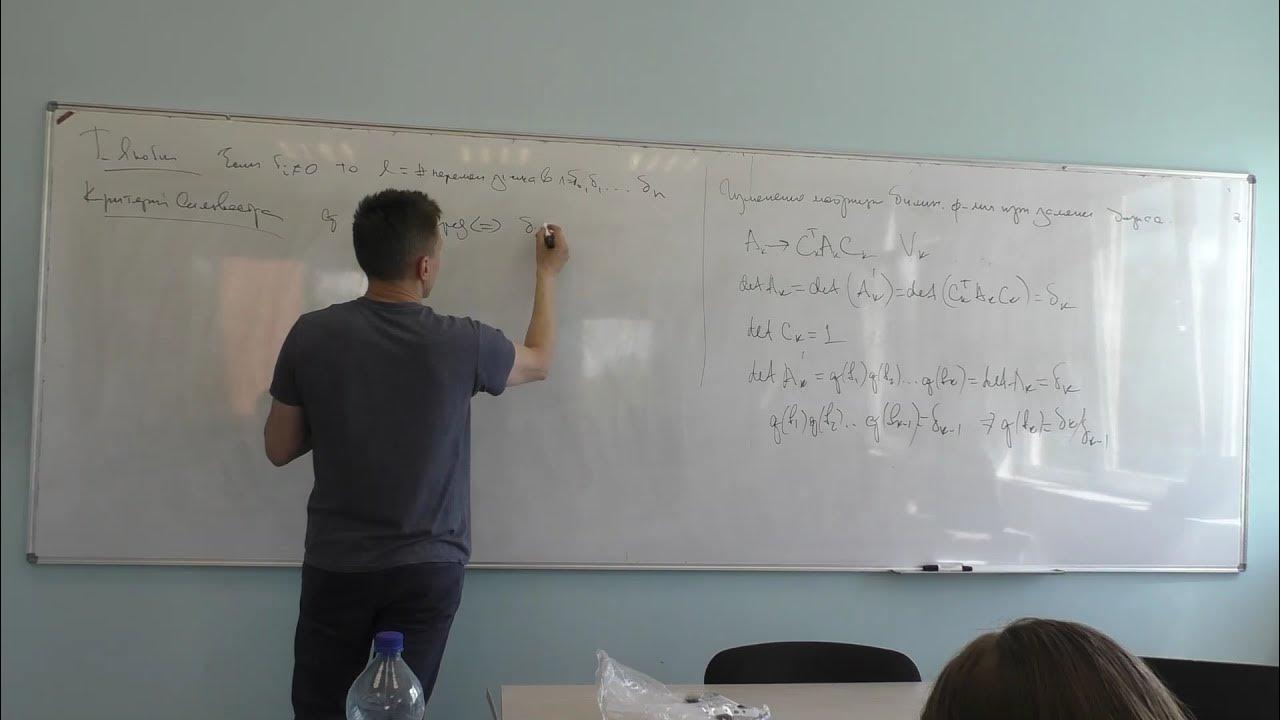 Т Якоби Если δᵢ≠0 то l = # перемен знака в 1=δ₀, δ₁ .... δₙ
Критерий Сильвестра q пред <=> δ
Изменение матрицы билин. ф-ции при замене базиса.
Aₖ → CₖᵀAₖCₖ Vₖ
det Aₖ = det (Aₖ') = det (CₖᵀAₖCₖ) = δₖ
det Cₖ = 1
det Aₖ' = q(f₁)q(f₂)...q(fₖ) = det Aₖ = δₖ
q(f₁)q(f₂)... q(fₖ₋₁) = δₖ₋₁ => q(fₖ) = δₖ/δₖ₋₁